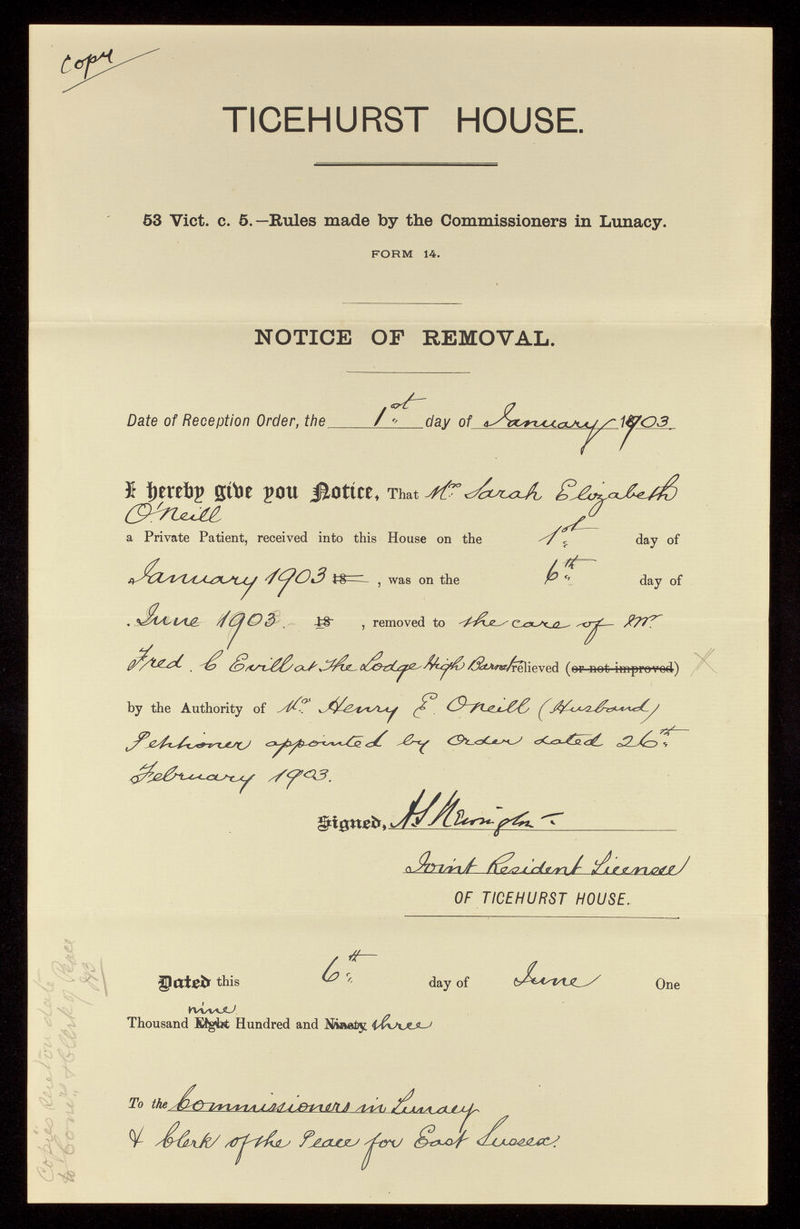 Copy
TICEHURST HOUSE.
53 Vict. c. 5.—Rules made by the Commissioners in Lunacy.
FORM 14.
NOTICE OF REMOVAL.
Date of Reception Order, the 1st day of January 1903.
I hereby give you Notice, That Mrs Sarah Elizabeth
O'Neill
a Private Patient, received into this House on the 1st day of
January 1903 18 , was on the 6th day of
June 1903. 18 , removed to the care of Mr
Fred. C Evill at The Lodge High Barnet relieved (or not improved)
by the Authority of Mr Henry E. O'Neill (Husband)
Petitioner appointed by Order dated 26th
February 1903.
Signed, H S Newington
Joint Resident Licensee
OF TICEHURST HOUSE.
Dated this 6th day of June One
nine
Thousand Eight Hundred and Ninety three
To the Commissioners in Lunacy
& Clerk of the Peace for East Sussex.
Copies sent on date
to Comrs & Clerk of Peace